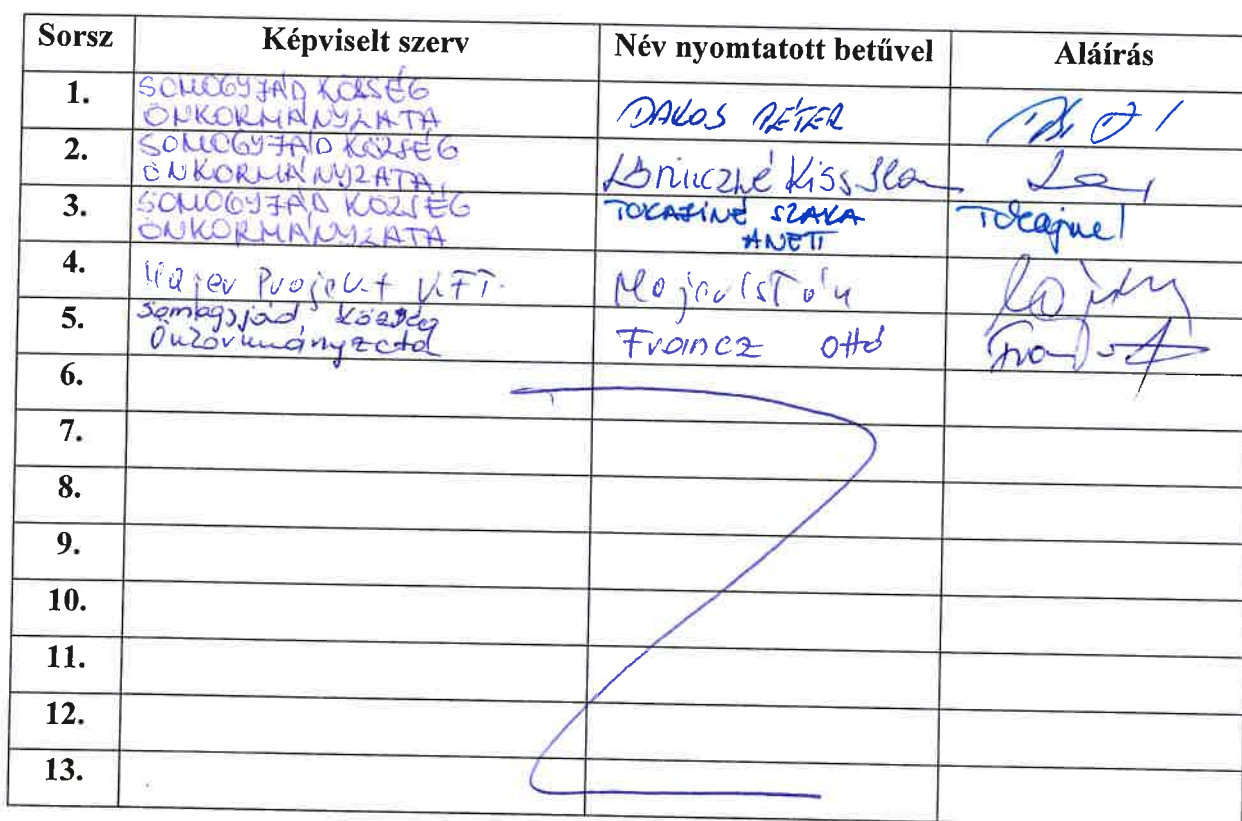 Sorsz Képviselt szerv Név nyomtatott betűvel Aláírás
1. SOMOGYJÁD KÖZSÉG
ÖNKORMÁNYZATA DAKOS PÉTER
2. SOMOGYJÁD KÖZSÉG
ÖNKORMÁNYZATA Kiss
3. SOMOGYJÁD KÖZSÉG TOKAJINÉ SZAKA
ÖNKORMÁNYZATA ANETT Tokajiné
4. Major Projekt KFT. Major István
5. Somogyjád Község
Önkormányzata Francz Ottó
6.
7.
8.
9.
10.
11.
12.
13.